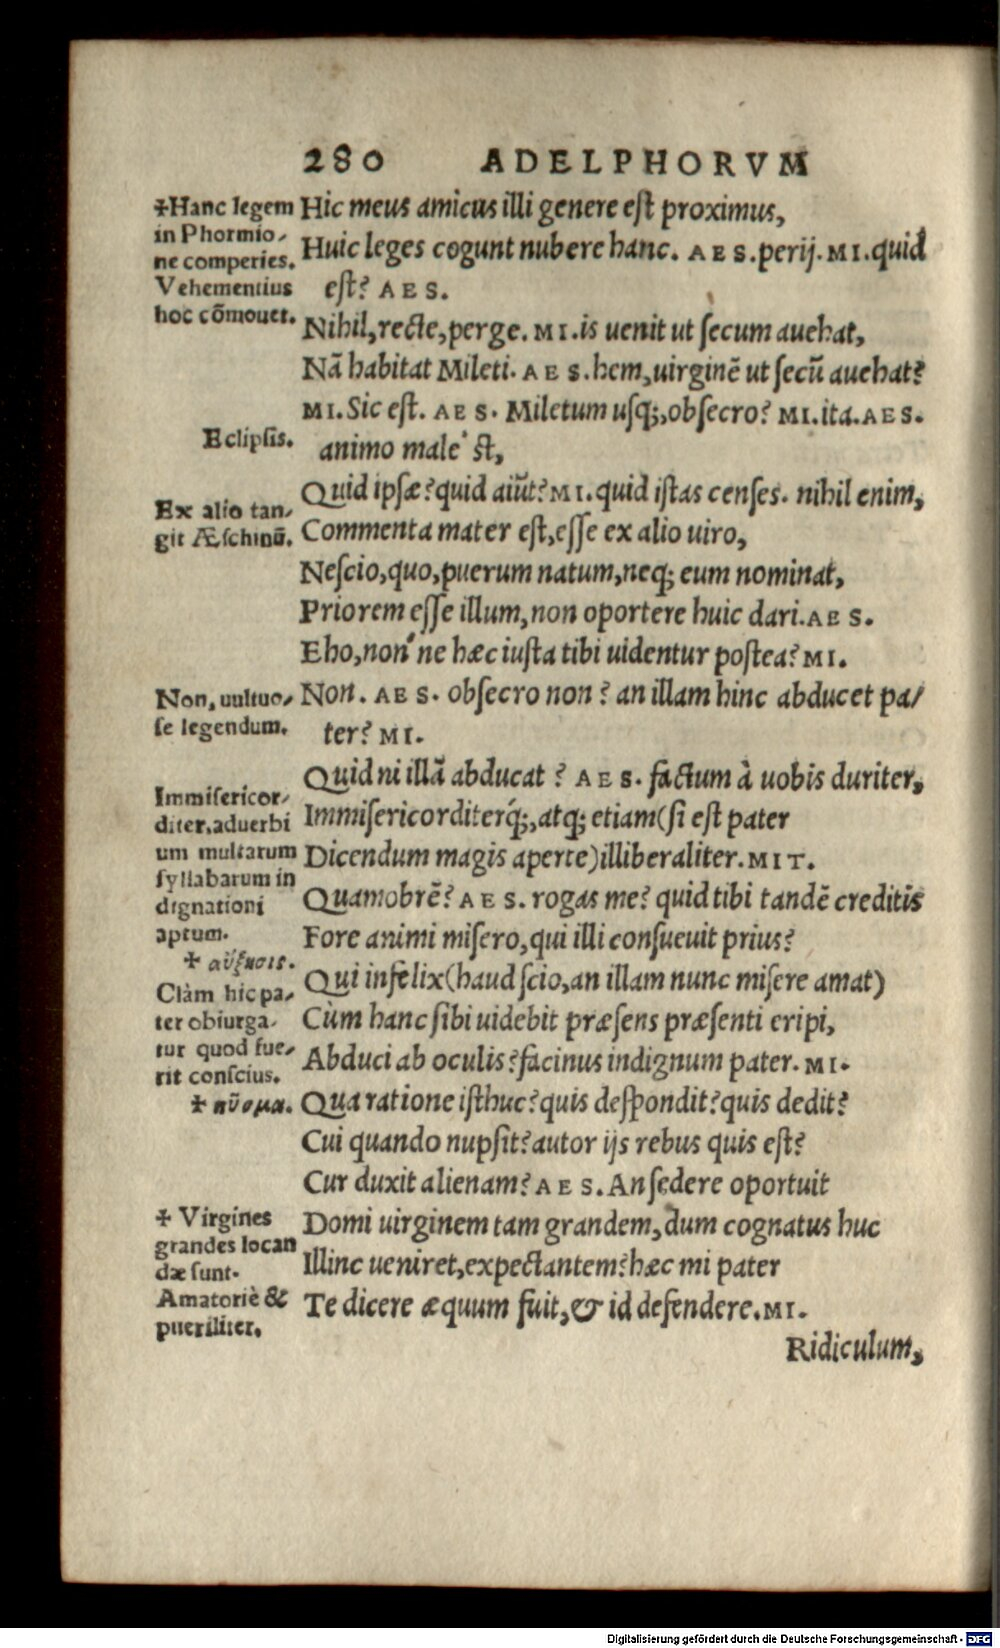 280 ADELPHORVM
✢Hanc legem
in Phormio-
ne comperies.
Vehementius
hoc cõmouet.
Eclipsis.
Ex alio tan-
git Æschinũ.
Non, uultuo-
se legendum.
Immisericor-
diter, aduerbi
um multarum
syllabarum in
dignationi
aptum.
✢ αὔξησις.
Clàm hic pa-
ter obiurga-
tur quod fue-
rit conscius.
✢ πῦσμα.
✢ Virgines
grandes locan
dæ sunt.
Amatoriè &
pueriliter.
Hic meus amicus illi genere est proximus,
Huic leges cogunt nubere hanc. AES. perij. MI. quid
est? AES.
Nihil, recte, perge. MI. is uenit ut secum auehat,
Nã habitat Mileti. AES. hem, uirginẽ ut secũ auehat?
MI. Sic est. AES. Miletum usq;, obsecro? MI. ita. AES.
animo male' st,
Quid ipsæ? quid aiũt? MI. quid istas censes. nihil enim,
Commenta mater est, esse ex alio uiro,
Nescio, quo, puerum natum, neq; eum nominat,
Priorem esse illum, non oportere huic dari. AES.
Eho, non' ne hæc iusta tibi uidentur postea? MI.
Non. AES. obsecro non? an illam hinc abducet pa/
ter? MI.
Quid ni illã abducat? AES. factum à uobis duriter,
Immisericorditerq́;, atq; etiam (si est pater
Dicendum magis aperte) illiberaliter. MIT.
Quamobrẽ? AES. rogas me? quid tibi tandẽ creditis
Fore animi misero, qui illi consueuit prius?
Qui infelix (haud scio, an illam nunc misere amat)
Cùm hanc sibi uidebit præsens præsenti eripi,
Abduci ab oculis? facinus indignum pater. MI.
Qua ratione isthuc? quis despondit? quis dedit?
Cui quando nupsit? autor ijs rebus quis est?
Cur duxit alienam? AES. An sedere oportuit
Domi uirginem tam grandem, dum cognatus huc
Illinc ueniret, expectantem? hæc mi pater
Te dicere æquum fuit, & id defendere. MI.
Ridiculum,
Digitalisierung gefördert durch die Deutsche Forschungsgemeinschaft - DFG